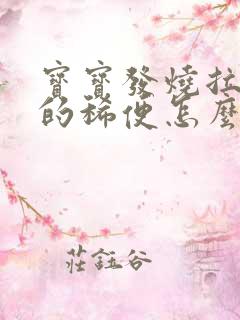 寶寶發燒拉
的稀便怎麼
莊鈺谷